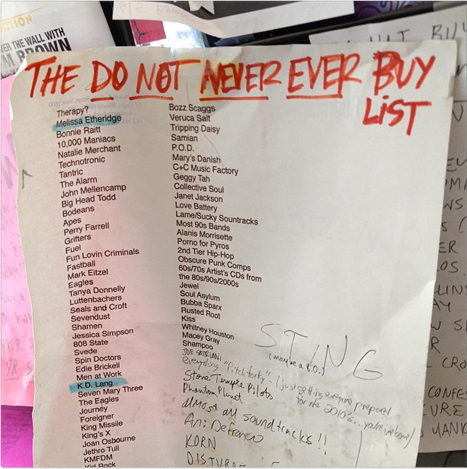 OVER THE WALL WITH
BROWN
THE DO NOT NEVER EVER BUY
LiST
Therapy?
Melissa Etheridge
Bonnie Raitt
10,000 Maniacs
Natalie Merchant
Technotronic
Tantric
The Alarm
John Mellencamp
Big Head Todd
Bodeans
Apes
Perry Farrell
Grifters
Fuel
Fun Lovin Criminals
Fastball
Mark Eitzel
Eagles
Tanya Donnelly
Luttenbachers
Seals and Croft
Sevendust
Shamen
Jessica Simpson
808 State
Svede
Spin Doctors
Edie Brickell
Men at Work
K.D. Lang
Seven Mary Three
The Eagles
Journey
Foreigner
King Missile
King's X
Joan Osbourne
Jethro Tull
KMFDM
Kid Rock
Bozz Scaggs
Veruca Salt
Tripping Daisy
Samian
P.O.D.
Mary's Danish
C+C Music Factory
Geggy Tah
Collective Soul
Janet Jackson
Love Battery
Lame/Sucky Sountracks
Most 90s Bands
Alanis Morrisette
Porno for Pyros
2nd Tier Hip-Hop
Obscure Punk Comps
60s/70s Artist's CDs from
the 80s/90s/2000s
Jewel
Soul Asylum
Bubba Sparx
Rusted Root
Kiss
Whitney Houston
Macey Gray
Shampoo
STING
everything "Pitchfork"
Stone Temple Pilots
Phantom Planet
almost all soundtracks!!
Ani Defranco
KORN
DISTURBE